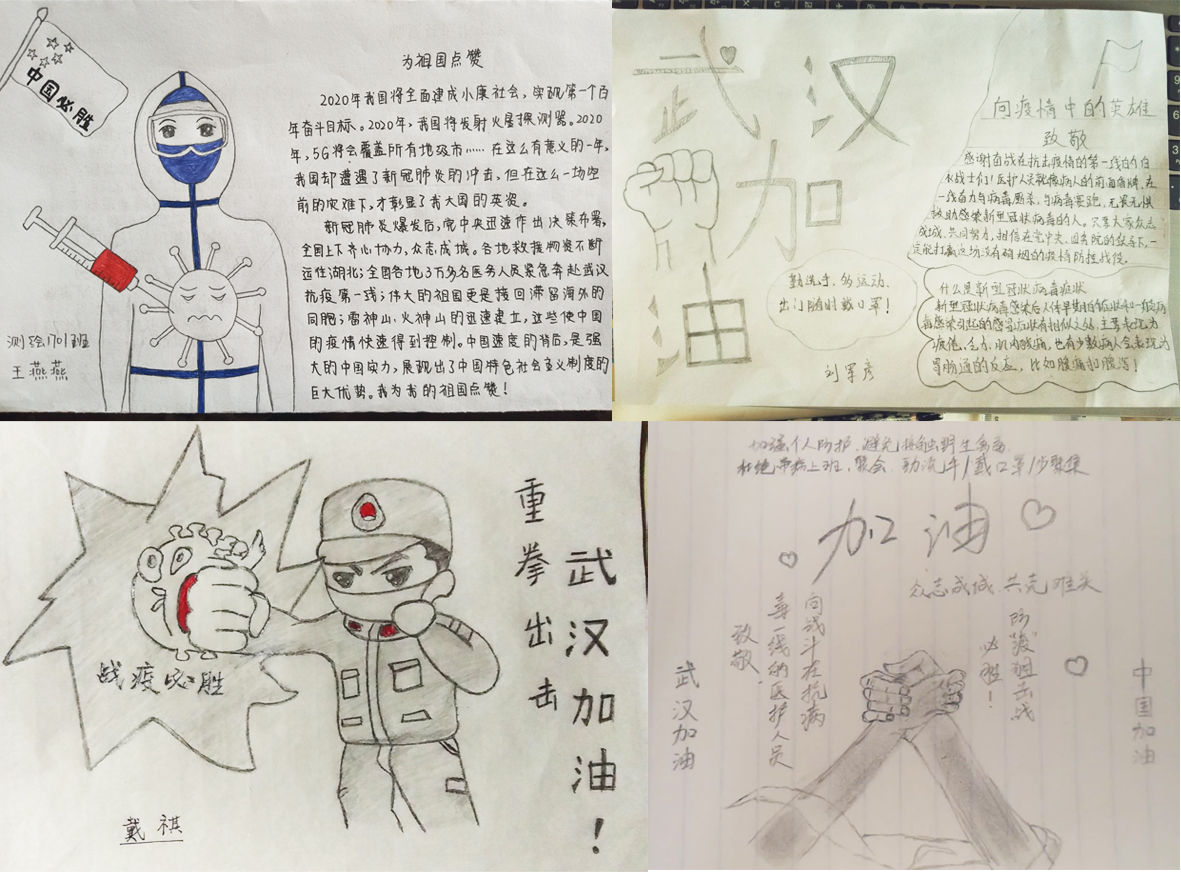 中国必胜
为祖国点赞
2020年我国将全面建成小康社会，实现第一个百
年奋斗目标。2020年，我国将发射火星探测器。2020
年，5G将会覆盖所有地级市……在这么有意义的一年，
我国却遭遇了新冠肺炎的冲击，但在这么一场空
前的灾难下，才彰显了我大国的英姿。
新冠肺炎爆发后，党中央迅速作出决策部署，
全国上下齐心协力，众志成城。各地救援物资不断
运往湖北；全国各地3万多名医务人员紧急奔赴武汉
抗疫第一线；伟大的祖国更是接回滞留海外的
同胞；雷神山、火神山的迅速建立，这些使中国
的疫情快速得到控制。中国速度的背后，是强
大的中国实力，展现出了中国特色社会主义制度的
巨大优势。我为我的祖国点赞！
测绘1701班
王燕燕
武汉
加
油
向疫情中的英雄
致敬
感谢奋战在抗击疫情的第一线的白
衣战士们！医护人员就像病人的前面盾牌，在
一线奋力与病毒厮杀，与病毒赛跑，无畏无惧
救助感染新型冠状病毒的人。只要大家众志
成城，共同努力，相信在党中央、国务院的领导下，一
定能打赢这场没有硝烟的疫情防控战役。
勤洗手，多运动，
出门随时戴口罩！
刘军彦
什么是新型冠状病毒症状
新型冠状病毒感染后人体早期的症状和一般病
毒感染引起的感冒症状有相似之处，主要表现为
疲倦、乏力、肌肉酸痛，也有少数病人会表现为
胃肠道的反应，比如腹痛和腹泻！
战疫必胜
重拳出击
武汉加油！
戴祺
加强个人防护，避免接触野生禽兽
杜绝带病上班、聚会，勤洗手/戴口罩/少聚集
加油
众志成城，共克难关
向战斗在抗病
毒一线的医护人员
致敬
防疫阻击战
必胜！
武汉加油
中国加油